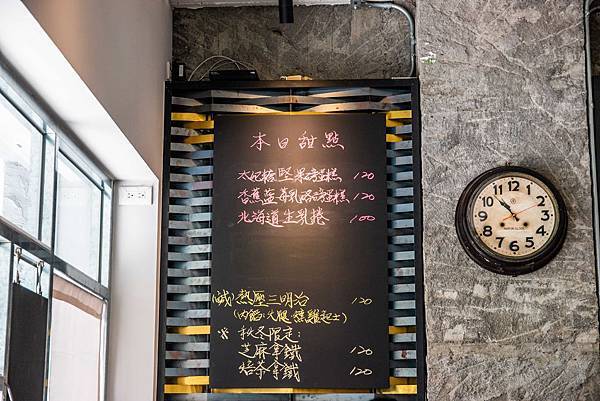 本日甜點
太妃糖堅果磅蛋糕 120
香蕉藍莓乳酪磅蛋糕 120
北海道生乳捲 100
(鹹)熱壓三明治 120
(內餡:火腿.燻雞起士)
※秋冬限定:
芝麻拿鐵 120
焙茶拿鐵 120
12
1
2
3
4
5
6
7
8
9
10
11